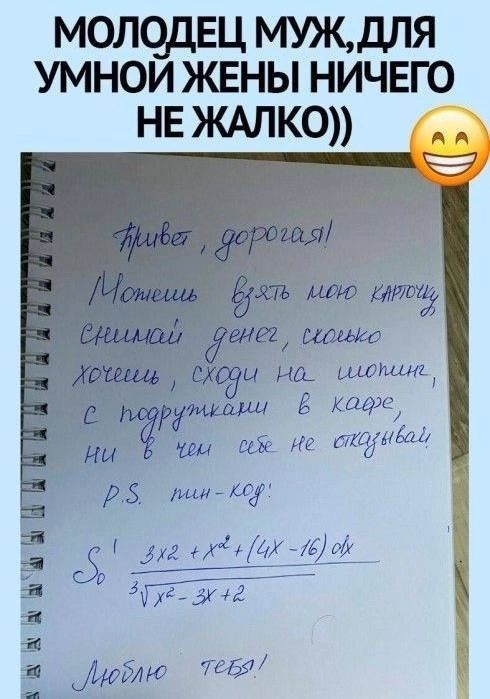 МОЛОДЕЦ МУЖ, ДЛЯ
УМНОЙ ЖЕНЫ НИЧЕГО
НЕ ЖАЛКО))
Привет, дорогая!
Можешь взять мою карточку,
снимай денег, сколько
хочешь, сходи на шопинг,
с подружками в кафе,
ни в чем себе не отказывай
P.S. пин-код:
∫₀¹ (3x2 + x² + (4x - 16) dx) / ∛(x² - 3x + 2)
Люблю тебя!